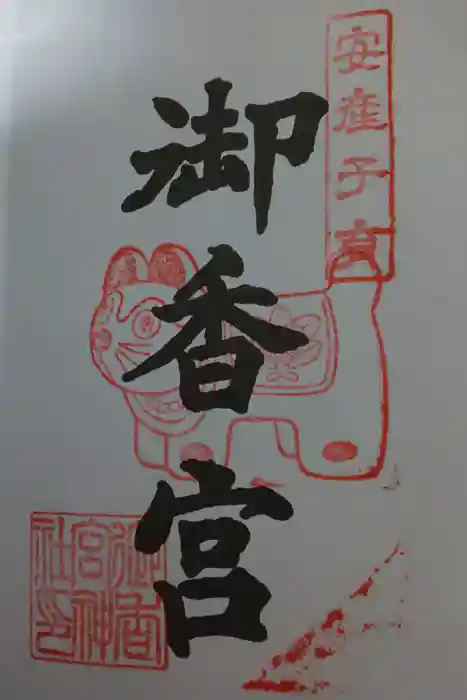 安産子育
御香宮
御香宮神社印